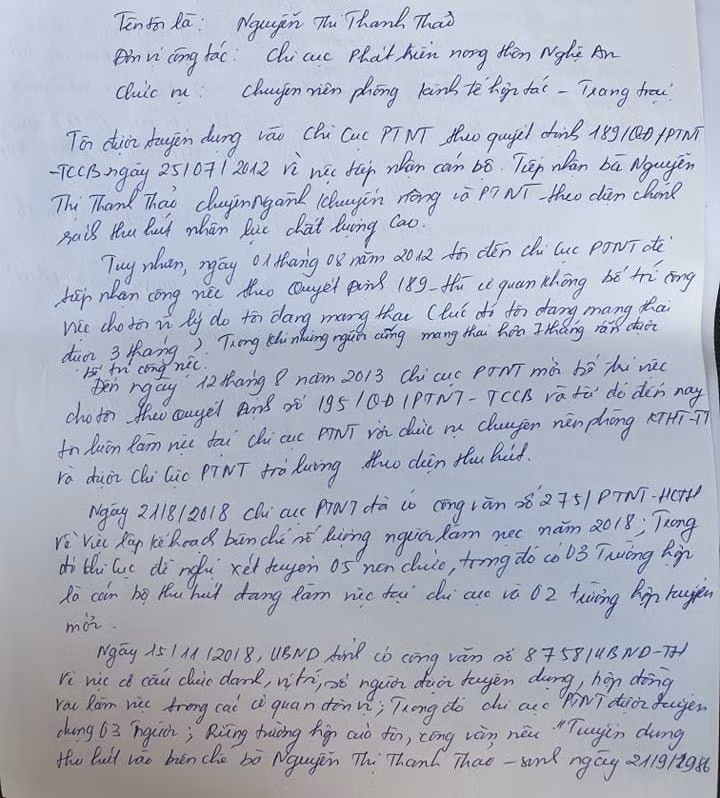 Tên tôi là: Nguyễn Thị Thanh Thảo
Đơn vị công tác: Chi cục Phát triển nông thôn Nghệ An
Chức vụ: Chuyên viên phòng kinh tế hợp tác - Trang trại.
Tôi được tuyển dụng vào Chi cục PTNT theo quyết định 189/QĐ/PTNT
-TCCB ngày 25/07/2012 về việc tiếp nhận cán bộ. Tiếp nhận bà Nguyễn
Thị Thanh Thảo chuyên ngành khuyến nông và PTNT theo diện chính
sách thu hút nhân lực chất lượng cao.
Tuy nhiên, ngày 01 tháng 08 năm 2012 tôi đến chi cục PTNT để
tiếp nhận công việc theo Quyết định 189 - thì cơ quan không bố trí công
việc cho tôi vì lý do tôi đang mang thai (lúc đó tôi đang mang thai
được 3 tháng). Trong khi những người cũng mang thai hơn 7 tháng vẫn được
bố trí công việc.
Đến ngày 12 tháng 8 năm 2013 chi cục PTNT mới bố trí việc
cho tôi theo Quyết định số 195/QĐ/PTNT-TCCB và từ đó đến nay
tôi luôn làm việc tại chi cục PTNT với chức vụ chuyên viên phòng KTHT-TT
và được Chi cục PTNT trả lương theo diện thu hút.
Ngày 21/8/2018 chi cục PTNT đã có công văn số 275/PTNT-HCTH
về việc lập kế hoạch biên chế số lượng người làm việc năm 2018; Trong
đó chi cục đề nghị xét tuyển 05 viên chức, trong đó có 03 Trường hợp
là cán bộ thu hút đang làm việc tại chi cục và 02 trường hợp tuyển
mới.
Ngày 15/11/2018, UBND tỉnh có công văn số 8758/UBND-TH
về việc cơ cấu chức danh, vị trí, số người được tuyển dụng, hợp đồng
vào làm việc trong các cơ quan đơn vị; Trong đó chi cục PTNT được tuyển
dụng 03 người; Riêng trường hợp của tôi, công văn nêu "Tuyển dụng
thu hút vào biên chế bà Nguyễn Thị Thanh Thảo - sinh ngày 21/9/1986